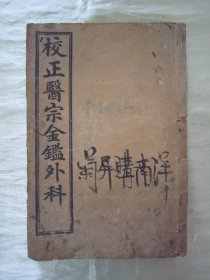 校正醫宗金鑑外科
菊屏購南洋